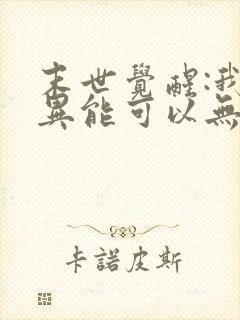 末世覺醒:我
異能可以無
卡諾皮斯